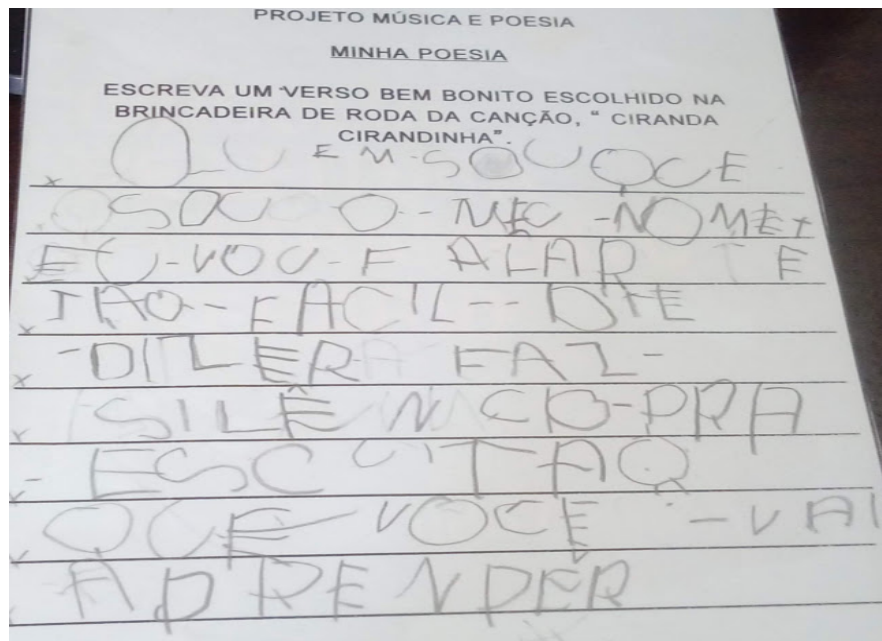 PROJETO MÚSICA E POESIA
MINHA POESIA
ESCREVA UM VERSO BEM BONITO ESCOLHIDO NA
BRINCADEIRA DE RODA DA CANÇÃO, “ CIRANDA
CIRANDINHA”.
QUEM-SOU QCE
SOU O-MEU-NOME
EU-VOU-FALAR TE
TAO-FACIL--
-DIZER FAZ-
SILÊNCIO-PRA
-ESCUTAQ
QCE VOCE -VAI
APRENDER